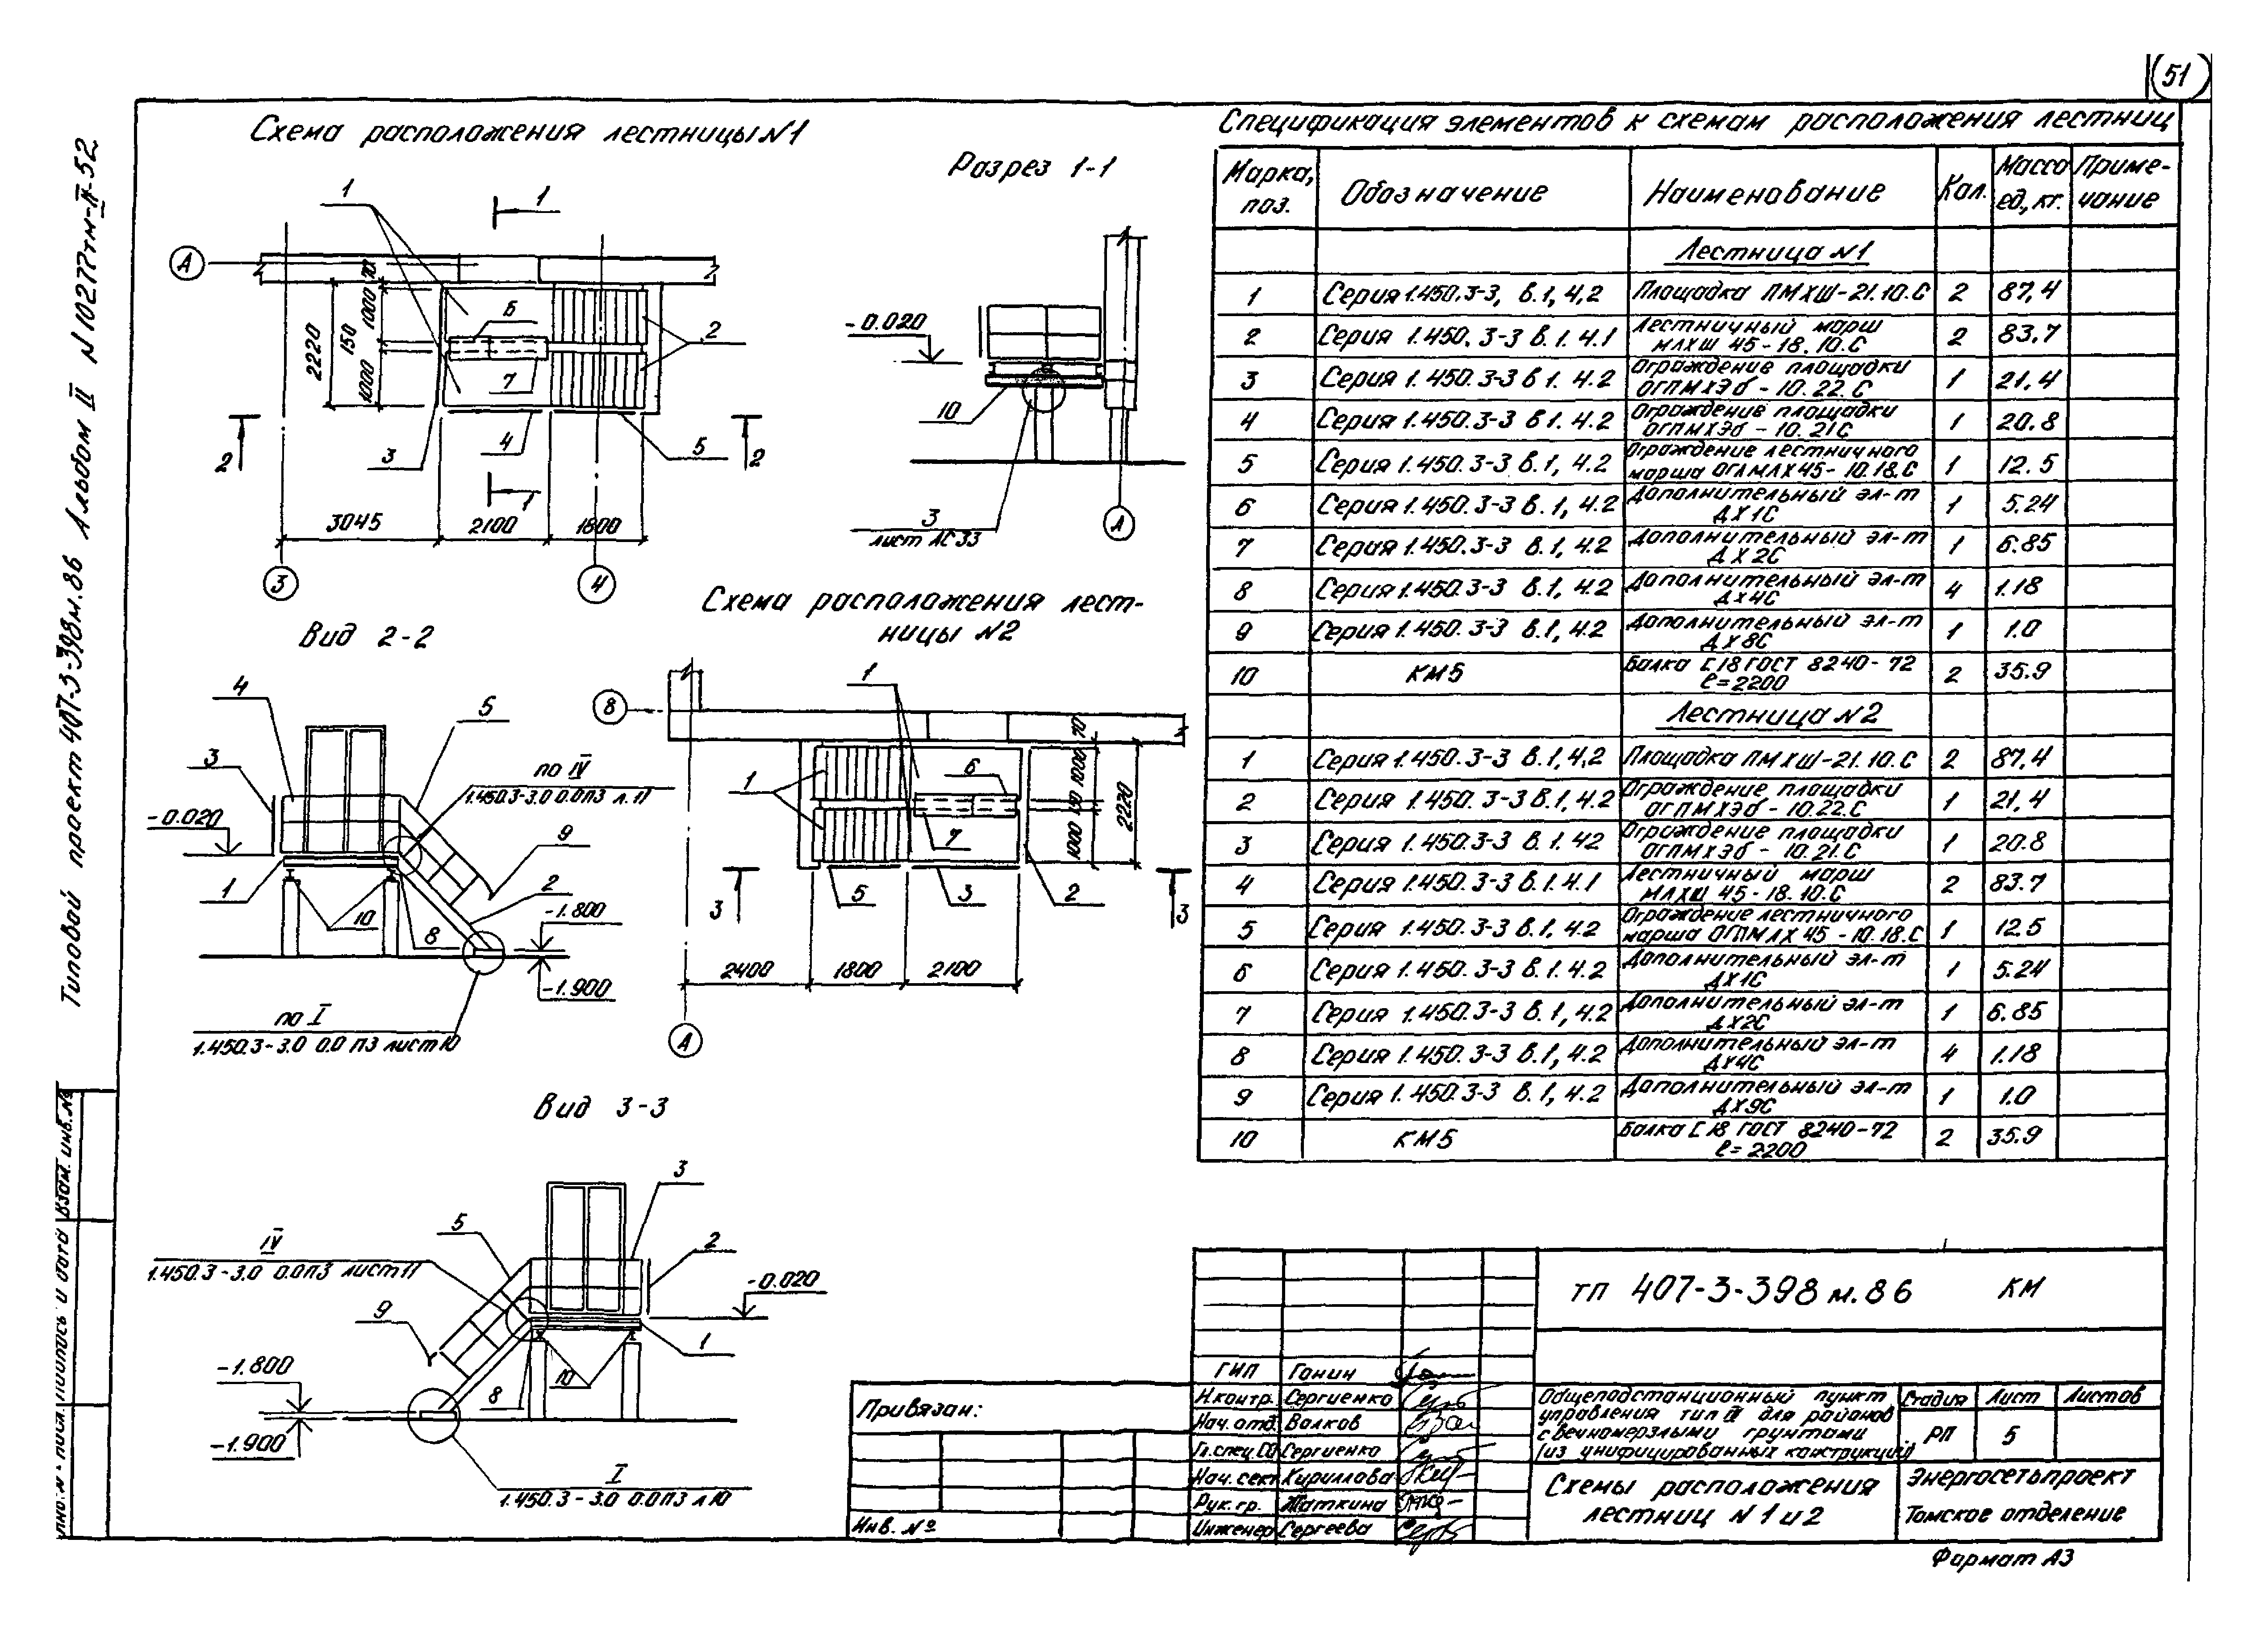 51
Типовой проект 407-3-398м.86 Альбом II N 10277тм-II-52
Схема расположения лестницы N1
1
1
А
70
1000
150
1000
2220
6
7
2
2
3
4
5
2
1
3045
2100
1800
3
4
Разрез 1-1
-0.020
10
3
лист АС33
А
Вид 2-2
4
5
3
по IV
1.450.3-3.0 0.0ПЗ л.11
-0.020
9
1
2
10
8
-1.800
-1.900
по I
1.450.3-3.0 0.0 ПЗ лист 10
Схема расположения лест-
ницы N2
1
8
70
1000
150
1000
2220
1
6
7
3
5
3
2
3
2400
1800
2100
А
Вид 3-3
3
5
2
IV
1.450.3-3.0 0.0ПЗ лист 11
-0.020
9
1
-1.800
8
10
-1.900
I
1.450.3-3.0 0.0ПЗ л 10
Спецификация элементов к схемам расположения лестниц
Марка, поз. Обозначение Наименование Кол. Масса ед., кг. Приме-чание
Лестница N1
1 Серия 1.450.3-3, в.1, 4,2 Площадка ПМХШ-21.10.С 2 87,4
2 Серия 1.450.3-3 в.1. 4.1 Лестничный марш МЛХШ 45-18.10.С 2 83.7
3 Серия 1.450.3-3 в 1. 4.2 Ограждение площадки ОГПМХЭб-10.22.С 1 21,4
4 Серия 1.450.3-3 в 1. 4.2 Ограждение площадки ОГПМХЭб-10.21С 1 20.8
5 Серия 1.450.3-3 в.1, 4.2 Ограждение лестничного марша ОГЛМЛХ45-10.18.С 1 12.5
6 Серия 1.450.3-3 в.1, 4.2 Дополнительный эл-т ДХ1С 1 5.24
7 Серия 1.450.3-3 в.1, 4.2 Дополнительный эл-т ДХ2С 1 6.85
8 Серия 1.450.3-3 в.1, 4.2 Дополнительный эл-т ДХ4С 4 1.18
9 Серия 1.450.3-3 в.1, 4.2 Дополнительный эл-т ДХ8С 1 1.0
10 КМ5 Балка [18 ГОСТ 8240-72 ℓ=2200 2 35.9
Лестница N2
1 Серия 1.450.3-3 в.1, 4,2 Площадка ПМХШ-21.10.С 2 87,4
2 Серия 1.450.3-3 в.1, 4.2 Ограждение площадки ОГПМХЭб-10.22.С 1 21,4
3 Серия 1.450.3-3 в.1. 42 Ограждение площадки ОГПМХЭб-10.21.С 1 20.8
4 Серия 1.450.3-3 в.1. 4.1 Лестничный марш МЛХШ 45-18.10.С 2 83.7
5 Серия 1.450.3-3 в.1, 4.2 Ограждение лестничного марша ОГПМЛХ45-10.18.С 1 12.5
6 Серия 1.450.3-3 в.1. 4.2 Дополнительный эл-т ДХ1С 1 5.24
7 Серия 1.450.3-3 в.1, 4.2 Дополнительный эл-т ДХ2С 1 6.85
8 Серия 1.450.3-3 в.1, 4.2 Дополнительный эл-т ДХ4С 4 1.18
9 Серия 1.450.3-3 в.1, 4.2 Дополнительный эл-т ДХ9С 1 1.0
10 КМ5 Балка [18 ГОСТ 8240-72 ℓ=2200 2 35.9
Взам. инв. №
Привязан:
Инв. №
ГИП Ганин
Н.контр. Сергиенко
Нач. отд. Волков
Гл.спец. Сергиенко
Нач. сект. Кириллова
Рук. гр. Жаткина
Инженер Сергеева
ТП 407-3-398м.86 КМ
Общеподстанционный пункт
управления тип III для районов
с вечномерзлыми грунтами
(из унифицированных конструкций)
Стадия Лист Листов
РП 5
Схемы расположения
лестниц N 1 и 2
Энергосетьпроект
Томское отделение
Формат А3